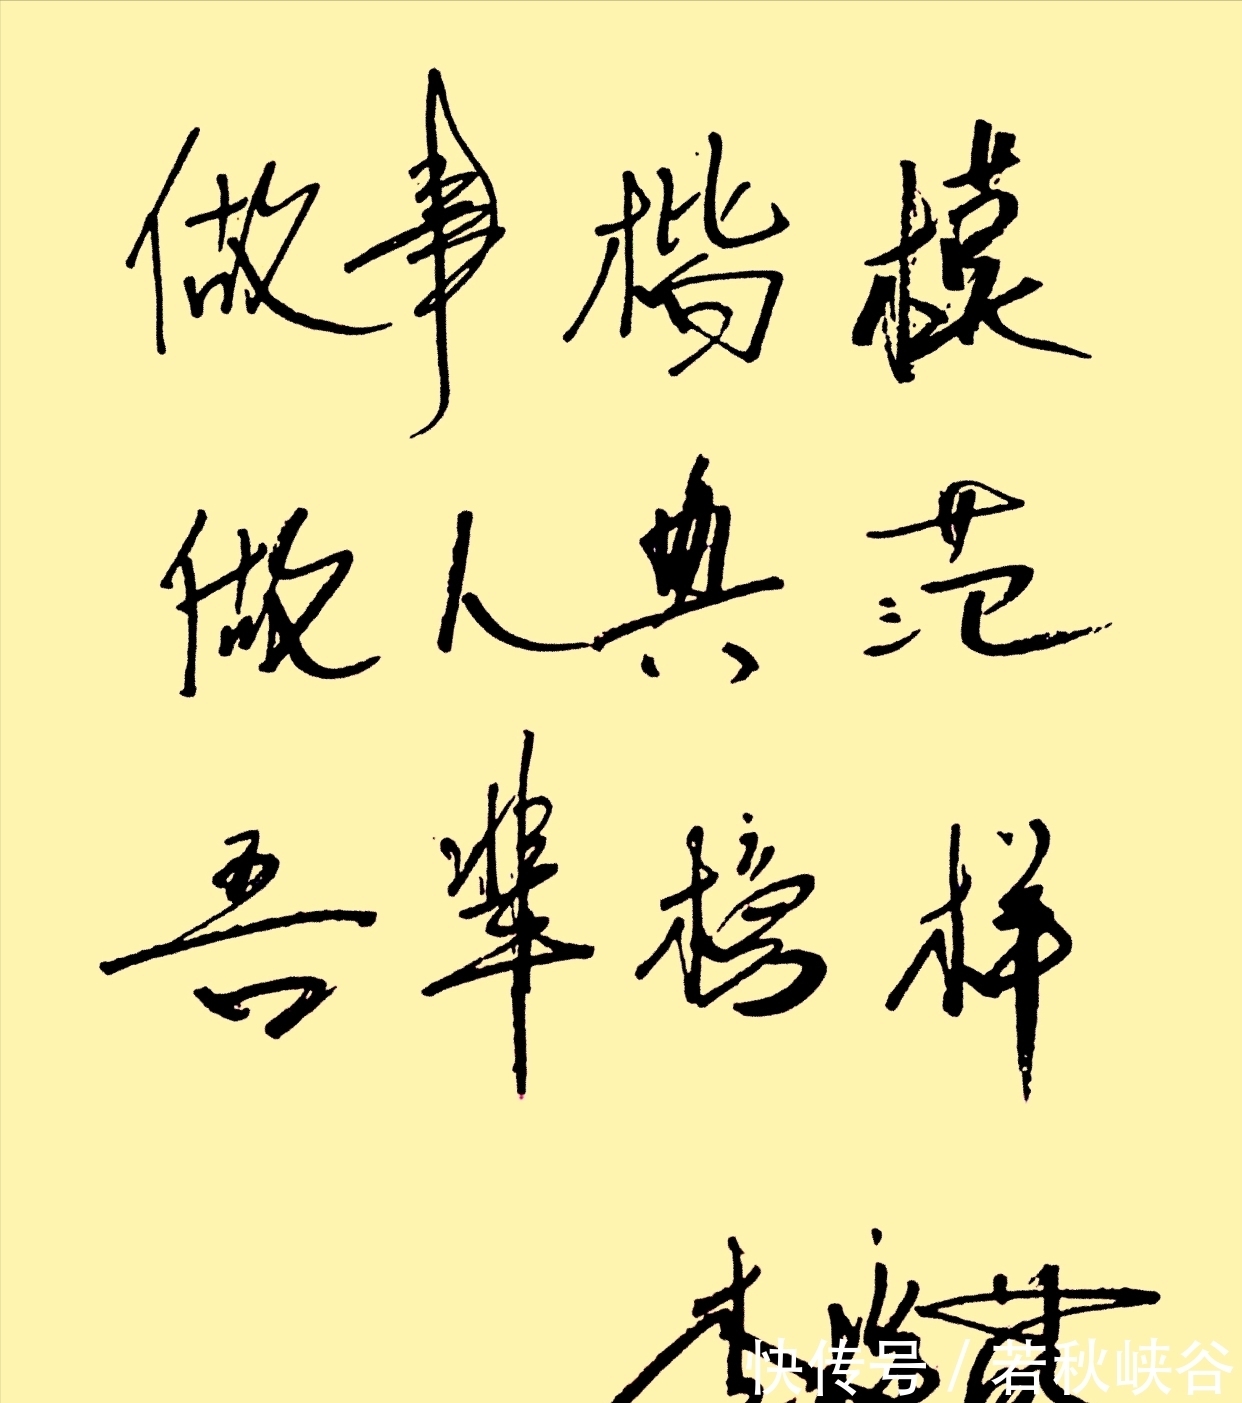 做事楷模
做人典范
吾辈榜样
快传号/若秋峡谷